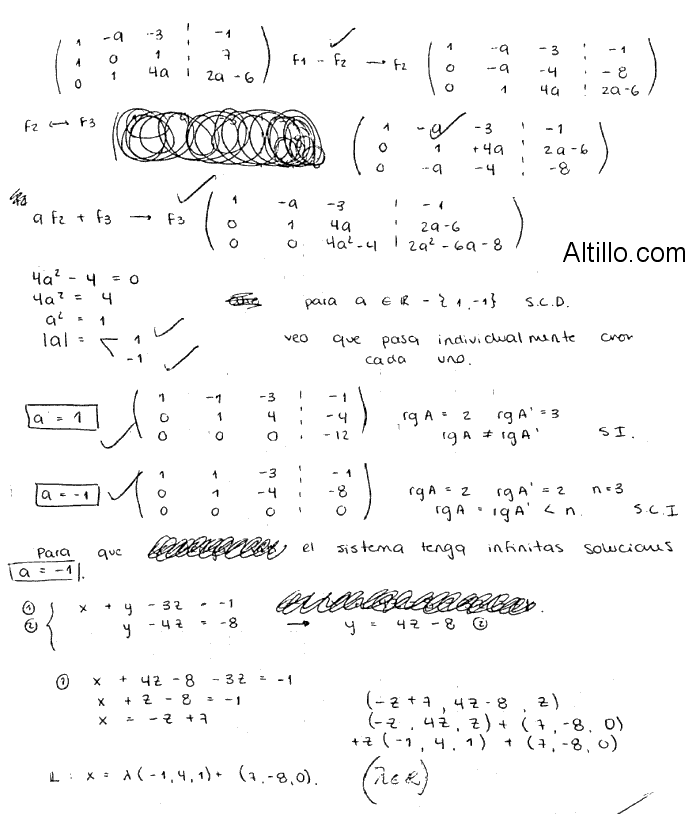 ( 1 -a -3 ¦ -1 )
( 1 0 1 ¦ 7 ) F1 - F2 → F2
( 0 1 4a ¦ 2a-6 )
( 1 -a -3 ¦ -1 )
( 0 -a -4 ¦ -8 )
( 0 1 4a ¦ 2a-6 )
F2 ↔ F3
( 1 -a -3 ¦ -1 )
( 0 1 +4a ¦ 2a-6 )
( 0 -a -4 ¦ -8 )
a F2 + F3 → F3
( 1 -a -3 ¦ -1 )
( 0 1 4a ¦ 2a-6 )
( 0 0 4a²-4 ¦ 2a²-6a-8 )
Altillo.com
4a² - 4 = 0
4a² = 4
a² = 1
|a| = < 1
-1
para a ∈ R - {1,-1} S.C.D.
veo que pasa individualmente con
cada uno.
a = 1
( 1 -1 -3 ¦ -1 )
( 0 1 4 ¦ -4 )
( 0 0 0 ¦ -12 )
rg A = 2 rg A' = 3
rg A ≠ rg A' S I.
a = -1
( 1 1 -3 ¦ -1 )
( 0 1 -4 ¦ -8 )
( 0 0 0 ¦ 0 )
rg A = 2 rg A' = 2 n=3
rg A = rg A' < n. S.C.I
Para que el sistema tenga infinitas soluciones
a = -1.
① { x + y - 3z = -1
② { y - 4z = -8 → y = 4z - 8 ②
① x + 4z - 8 - 3z = -1
x + z - 8 = -1
x = -z + 7
(-z + 7, 4z - 8, z)
(-z, 4z, z) + (7, -8, 0)
+z (-1, 4, 1) + (7, -8, 0)
L : x = λ (-1,4,1) + (7,-8,0). (λ∈R)